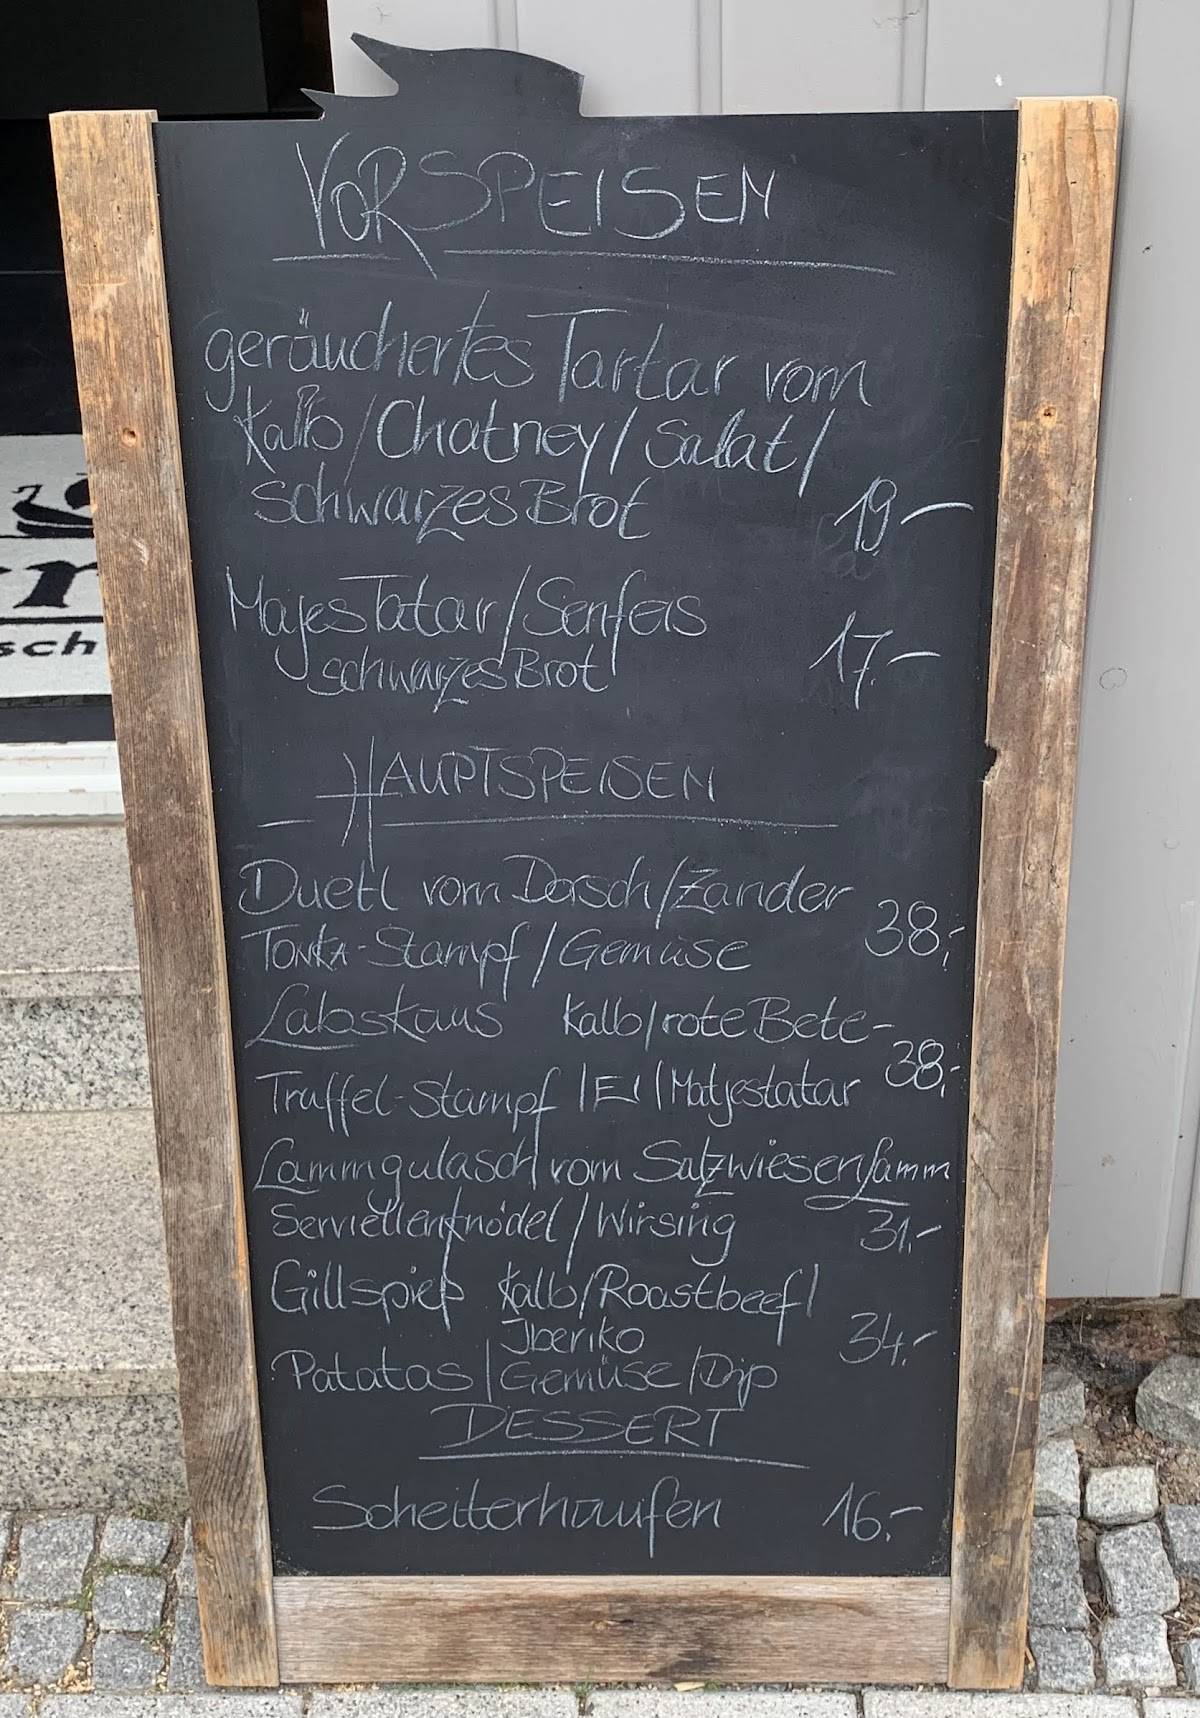 VORSPEISEN
geräuchertes Tartar vom
Kalb/Chatney/Salat/
schwarzes Brot 19.-
MatjesTatar/Senfeis
schwarzes Brot 17.-
HAUPTSPEISEN
Duett vom Dorsch/Zander
TONKA-Stampf/Gemüse 38,-
Labskaus Kalb/rote Bete-
Trüffel-Stampf/Ei/Matjestatar 38,-
Lammgulasch vom Salzwiesenlamm
Serviettenknödel/Wirsing 31.-
Grillspieß Kalb/Roastbeef/
Iberiko 34.-
Patatas/Gemüse/Dip
DESSERT
Scheiterhaufen 16.-
sch